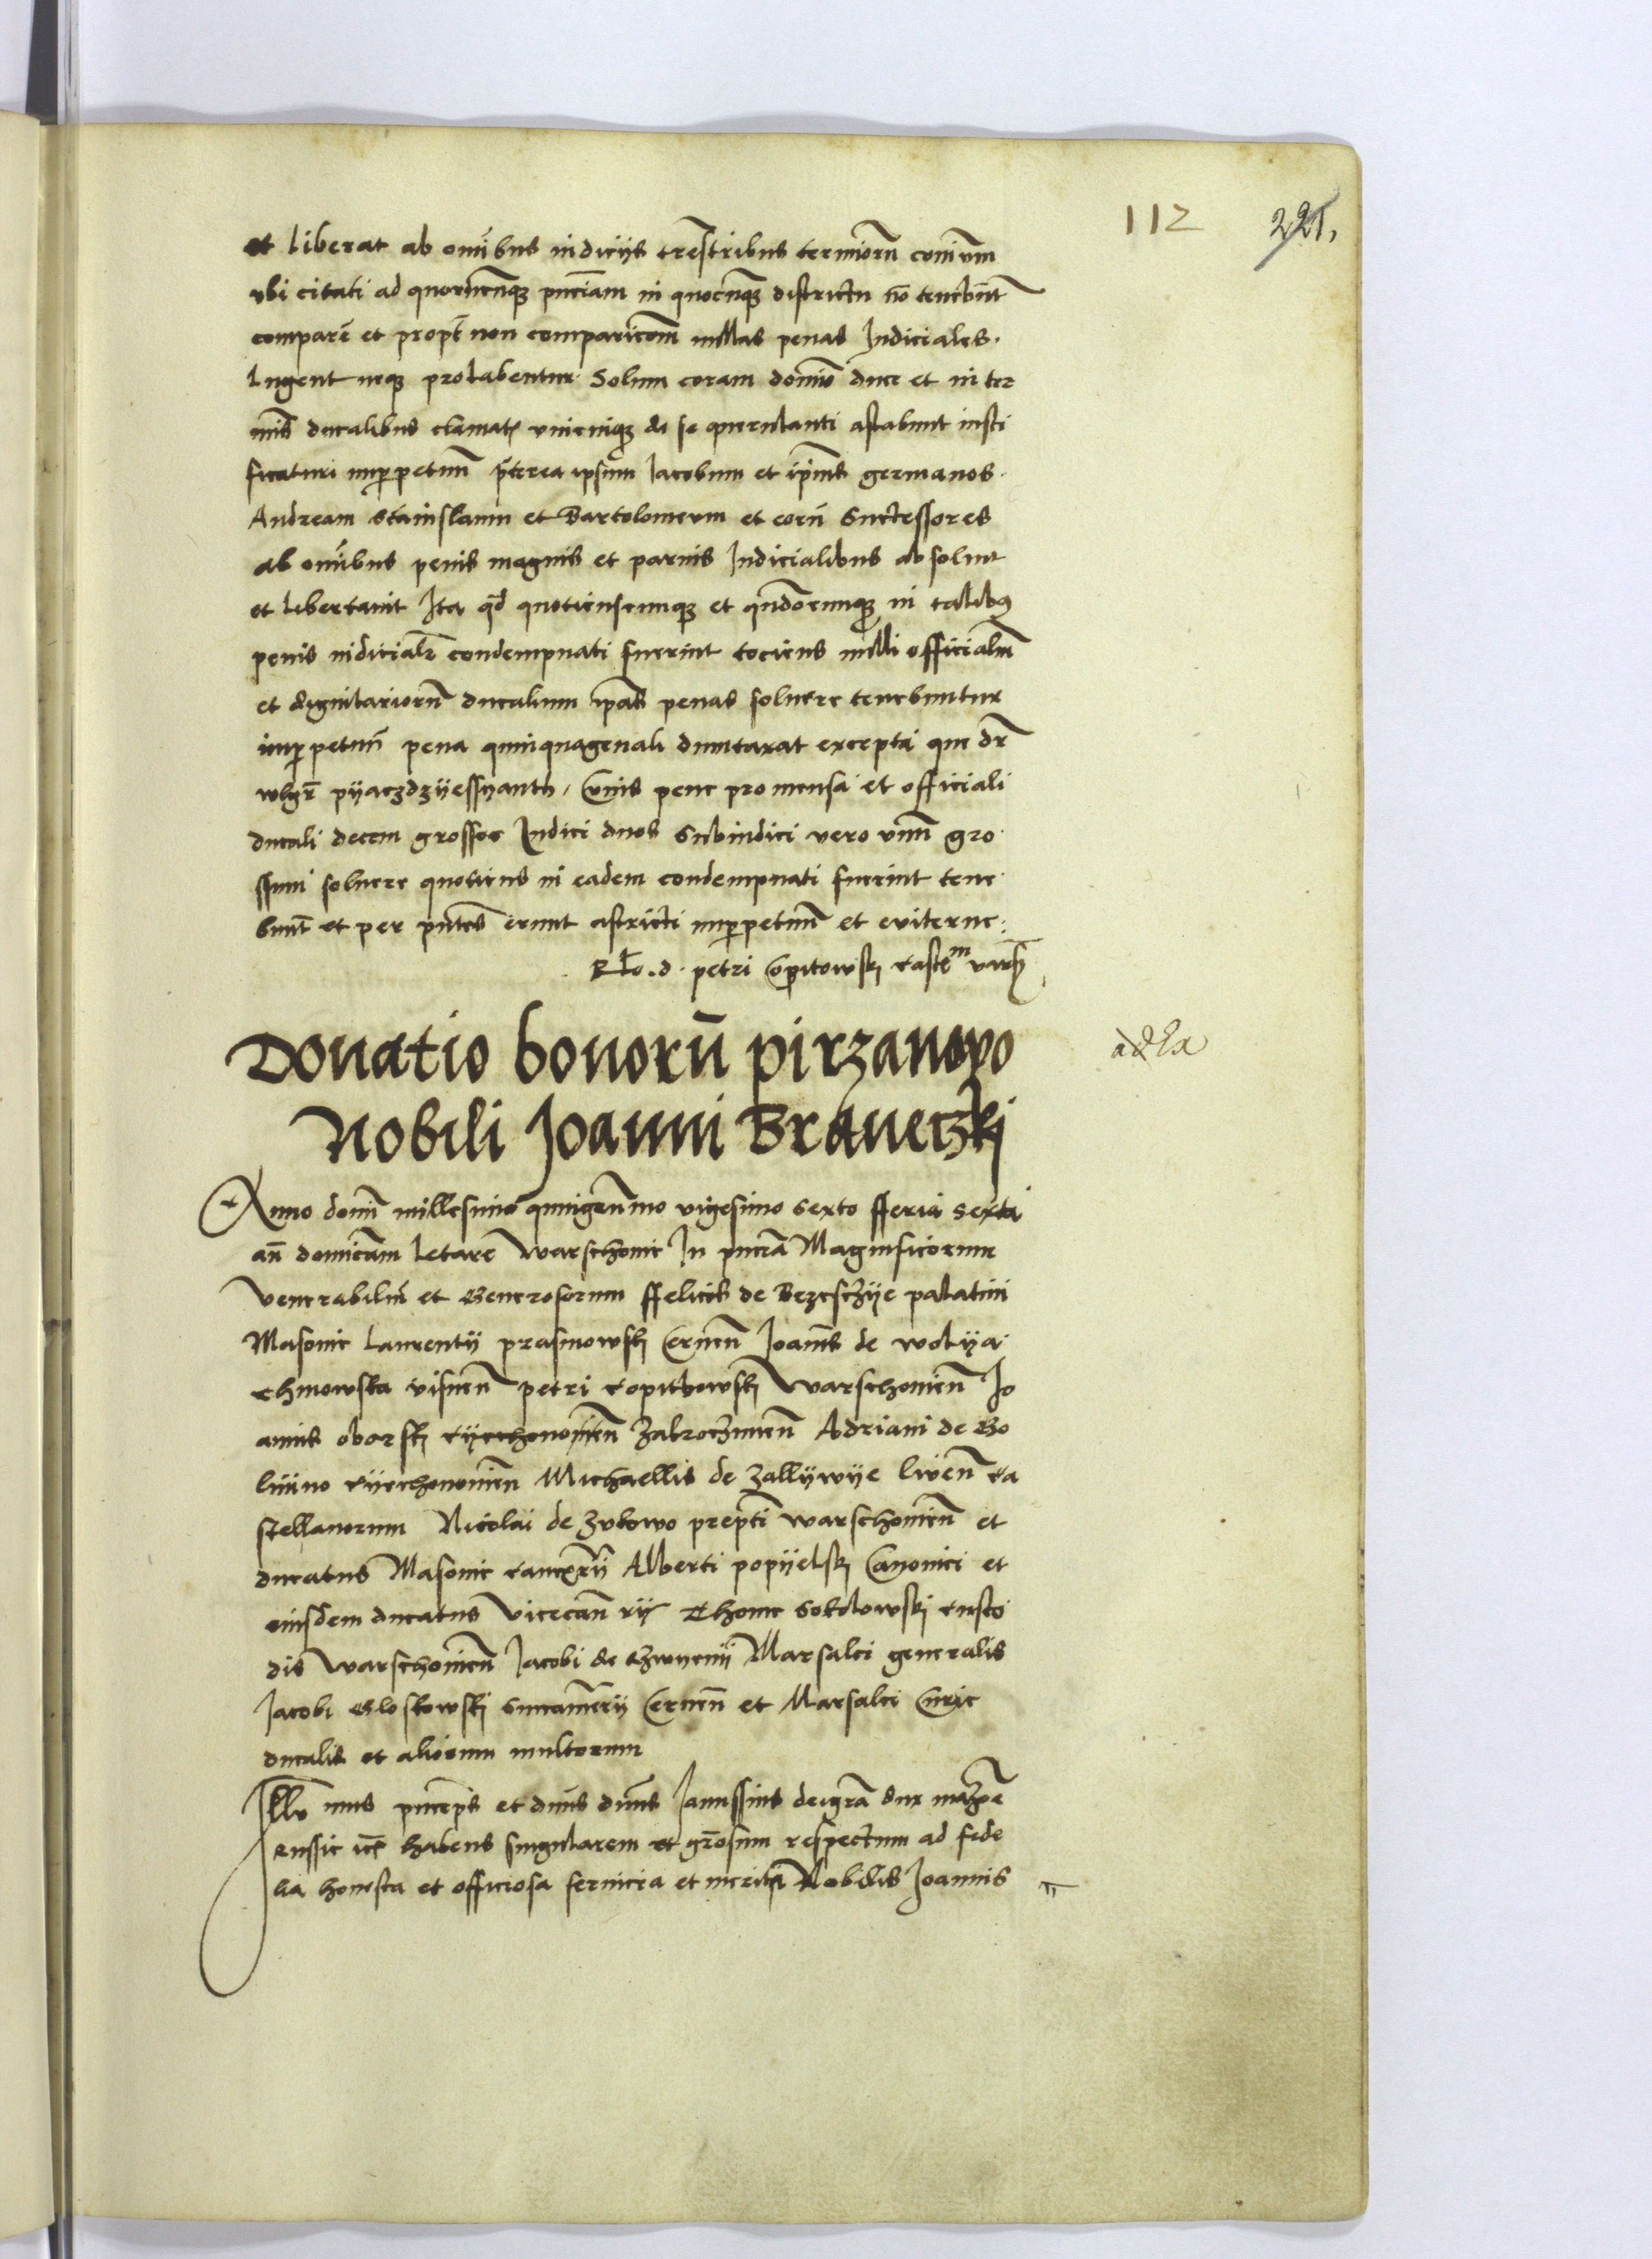 112 221.
et liberat ab omībus iudicijs trēstribus termiorū comūm
vbi citati ad quorūcūqꝫ pnciam in quocūqꝫ districtu nō tenebūt
comparē et propt̄ non comparicom̄ nullas penas Judiciales.
Lugent neqꝫ prolabentur Solum coram domio duce et in ter
mis ducalibus clamatꝭ vnicuiqꝫ de se querulanti astabunt iusti
ficaturi imꝑpetuū p̄terea ipsum Jacobum et ipius germanos
Andream Stainslaum et Bartolomeum et eorū Successores
ab omībus penis magnis et paruis Judicialibus absoluit
et libertauit Ita qd̄ quotienscumqꝫ et qn̄documqꝫ in talibꝰ
penis iudicialꝭ condempnati fuerint tociens nulli officialiū
et dignitariorū ducalium ip̄as penas soluere tenebuntur
imꝑpetuū pena quinquagenali duntaxat excepta que dr̄
wlgr̄ pyaczdzyessyanth, Cuius pene pro mensa et officiali
ducali decem grossos Judici duos Subiudici vero vnū gro
ssum soluere quotiens in eadem condempnati fuerint tene
bunt̄ et per pn̄tes erunt astricti imꝑpetuū et eviterne:
Rlo. d. petri Copitowskj castellm̄
Donatio bonorū pirzanowo
Nobili Joanni Braneczkj
adla
Anno domī millesimo quingen̄mo vigesimo sexto fferia sexta
an̄ domicam letare Warschouie In pncīa Magnificorum
Venerabiliū et Generosorum ffelicis de Bezesczye palatini
Masouie Laurentij prasmowskj Cernen̄ Joannis de wolya
chmowska visnen̄ petri copitkowskj Warschouien̄ Jo
annis oborskj cyechonouien̄ Zakroczmien̄ Adriani de Go
linino cyechonouien̄ Michaellis de Zallywye liven̄ ca
stellanorum Nicolai de Zukowo prepti warschouien̄ et
ducatus Masouie cancrij Alberti popyelskj Canonici et
eiusdem ducatus Vicecan̄rij Thome Sokolowskj custo
dis Warschouien̄ Jacobi de Marsalci generalis
Jacobi Gloskowskj Succamerij Cernen̄ et Marsalci Curie
ducalis et aliorum multorum
Illr̄ mus princeps et dn̄us dn̄us Janussius dei gr̄a dux
Russie ac̄ habens singularem et gr̄osum respectum ad fide
lia honesta et officiosa seruicia et merita Nobilis Joannis